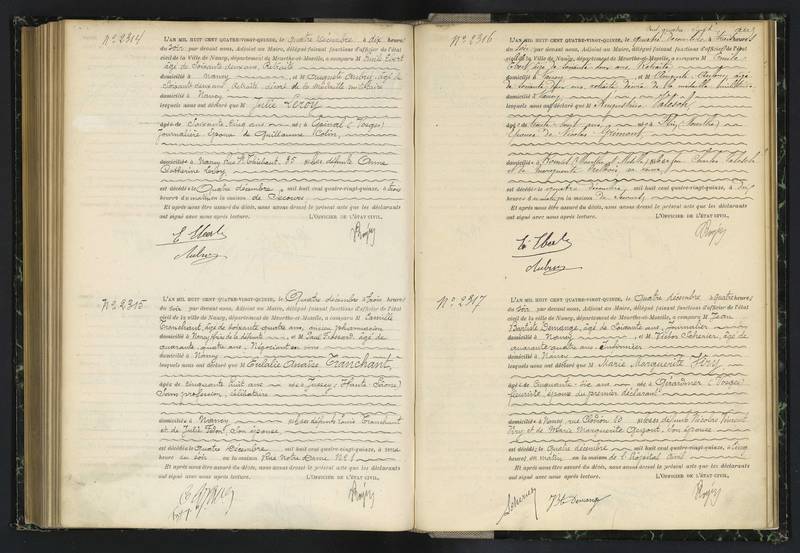 N° 2314
L'AN MIL HUIT CENT QUATRE-VINGT-QUINZE, le quatre décembre à dix heures
du soir par devant nous, Adjoint au Maire, délégué faisant fonctions d'officier de l'état
civil de la Ville de Nancy, département de Meurthe-et-Moselle, a comparu M Emile Eberl
âgé de soixante deux ans, Retraité
domicilié à Nancy et M Auguste Aubry âgé de
soixante deux ans, Retraité, décoré de la médaille militaire
domicilié à Nancy
lesquels nous ont déclaré que M Julie Leroy
âgée de soixante cinq ans née à Epinal (Vosges)
journalière Epouse de Guillaume Colin,
domiciliée à Nancy Rue St Thiébaut, 35 défunte Anne
Catherine Leroy,
est décédée le Quatre décembre mil huit cent quatre-vingt-quinze, à trois
heures du matin en la maison de Secours
Et après nous être assuré du décès, nous avons dressé le présent acte que les déclarants
ont signé avec nous après lecture. L'OFFICIER DE L'ÉTAT CIVIL,
E. Eberl
Aubry
N° 2315
L'AN MIL HUIT CENT QUATRE-VINGT-QUINZE, le Quatre décembre à trois heures
du soir par devant nous, Adjoint au Maire, délégué faisant fonctions d'officier de l'état
civil de la ville de Nancy, département de Meurthe-et-Moselle, a comparu M Camille
Tranchant, âgé de soixante quatre ans, ancien pharmacien
domicilié à Nancy frère de la défunte, et M Paul âgé de
quarante quatre ans Négociant en vins
domicilié à Nancy
lesquels nous ont déclaré que M Eulalie Anaïse Tranchant,
âgée de cinquante huit ans née à Jussey (Haute Saône)
Sans profession, célibataire
domiciliée à Nancy défunts Louis Tranchant
et de Julie son épouse
est décédée le Quatre Décembre mil huit cent quatre-vingt-quinze, à une
heure du soir en la maison Rue Notre Dame N° 1
Et après nous être assuré du décès, nous avons dressé le présent acte que les déclarants
ont signé avec nous après lecture. L'OFFICIER DE L'ÉTAT CIVIL,
N° 2316
L'AN MIL HUIT CENT QUATRE-VINGT-QUINZE, le quatre décembre à heures
du soir par devant nous, Adjoint au Maire, délégué faisant fonctions d'officier de l'état
civil de la ville de Nancy, département de Meurthe-et-Moselle, a comparu M Emile
Eberl âgé de soixante deux ans, Retraité
domicilié à Nancy et M Auguste Aubry âgé
de soixante deux ans, retraité décoré de la médaille militaire
domicilié à Nancy
lesquels nous ont déclaré que M Augustine
âgée de ans née à (Meurthe)
épouse de Nicolas
domiciliée à (Meurthe et Moselle) Charles
et de Marguerite
est décédée le quatre décembre mil huit cent quatre-vingt-quinze, à
heures du matin en la maison de Secours
Et après nous être assuré du décès, nous avons dressé le présent acte que les déclarants
ont signé avec nous après lecture. L'OFFICIER DE L'ÉTAT CIVIL,
E. Eberl
Aubry
N° 2317
L'AN MIL HUIT CENT QUATRE-VINGT-QUINZE, le Quatre décembre à quatre heures
du Soir par devant nous, Adjoint au Maire, délégué faisant fonctions d'officier de l'état
civil de la ville de Nancy, département de Meurthe-et-Moselle, a comparu M Jean
Baptiste Demange, âgé de soixante ans, journalier
domicilié à Nancy, et M Scherier, âgé de
quarante quatre ans
domicilié à Nancy
lesquels nous ont déclaré que M Marie Marguerite Viry
âgée de Cinquante six ans née à Gérardmer (Vosges)
fleuriste, épouse du premier déclarant
domiciliée à Nancy, rue Clodion 10 défunts Nicolas Vincent
Viry et de Marie Marguerite son épouse
est décédée le Quatre décembre mil huit cent quatre-vingt-quinze, à cinq
heures du matin en la maison de l'Hôpital Civil
Et après nous être assuré du décès, nous avons dressé le présent acte que les déclarants
ont signé avec nous après lecture. L'OFFICIER DE L'ÉTAT CIVIL,
Scherier Bte Demange